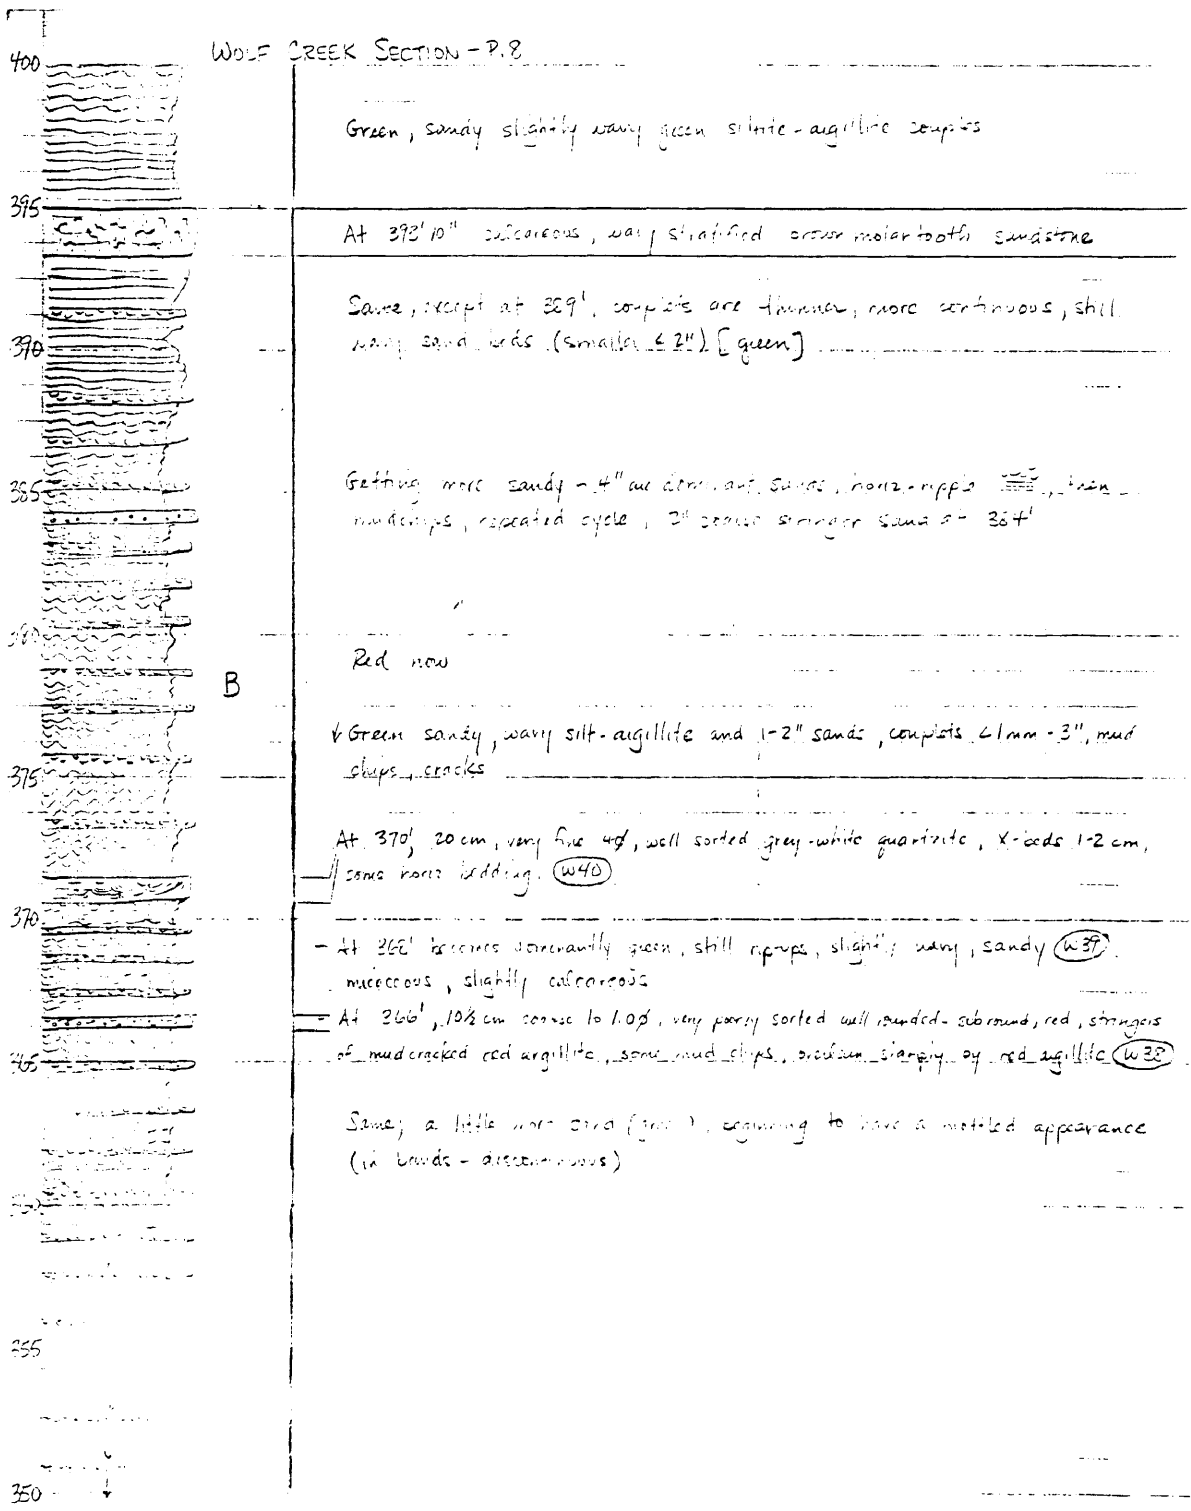 WOLF CREEK SECTION - P.8
400
Green, sandy slightly wavy green siltite-argillite couplets
395
At 393'10" calcareous, wavy stratified brown molartooth sandstone
Same, except at 389', couplets are thinner, more continuous, still
390
wavy sand beds (smaller < 2") [green]
385
Getting more sandy - 4" are dominant sands, horiz-ripple, then
mudchips, repeated cycle, 2" coarse stringer sand at 384'
380
Red now
B
↓ Green sandy, wavy silt-argillite and 1-2" sands, couplets <1mm - 3", mud
375
chips, cracks
At 370', 20 cm, very fine 4ø, well sorted grey-white quartzite, X-beds 1-2 cm,
some horiz bedding. W40
370
- At 368' becomes dominantly green, still rip-ups, slightly wavy, sandy W39
micaceous, slightly calcareous
- At 366', 10½ cm coarse to 1.0ø, very poorly sorted well rounded-subround, red, stringers
365
of mudcracked red argillite, some mud chips, overlain sharply by red argillite W38
Same, a little more sand, beginning to have a mottled appearance
(in bands - discontinuous)
360
355
350